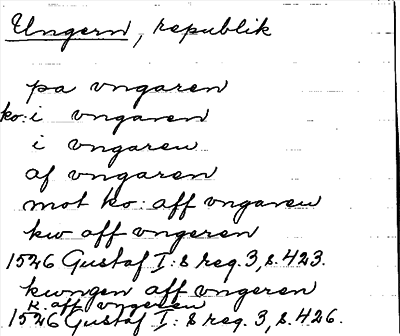 Ungern, republik
pa vngaren
ko: i vngaren
i vngaren
af vngaren
mot ko: aff vngaren
kw aff vngeren
1526 Gustaf I:s reg. 3, s. 423.
kwngen aff vngeren
k. aff vngeren
1526 Gustaf I:s reg. 3, s. 426.